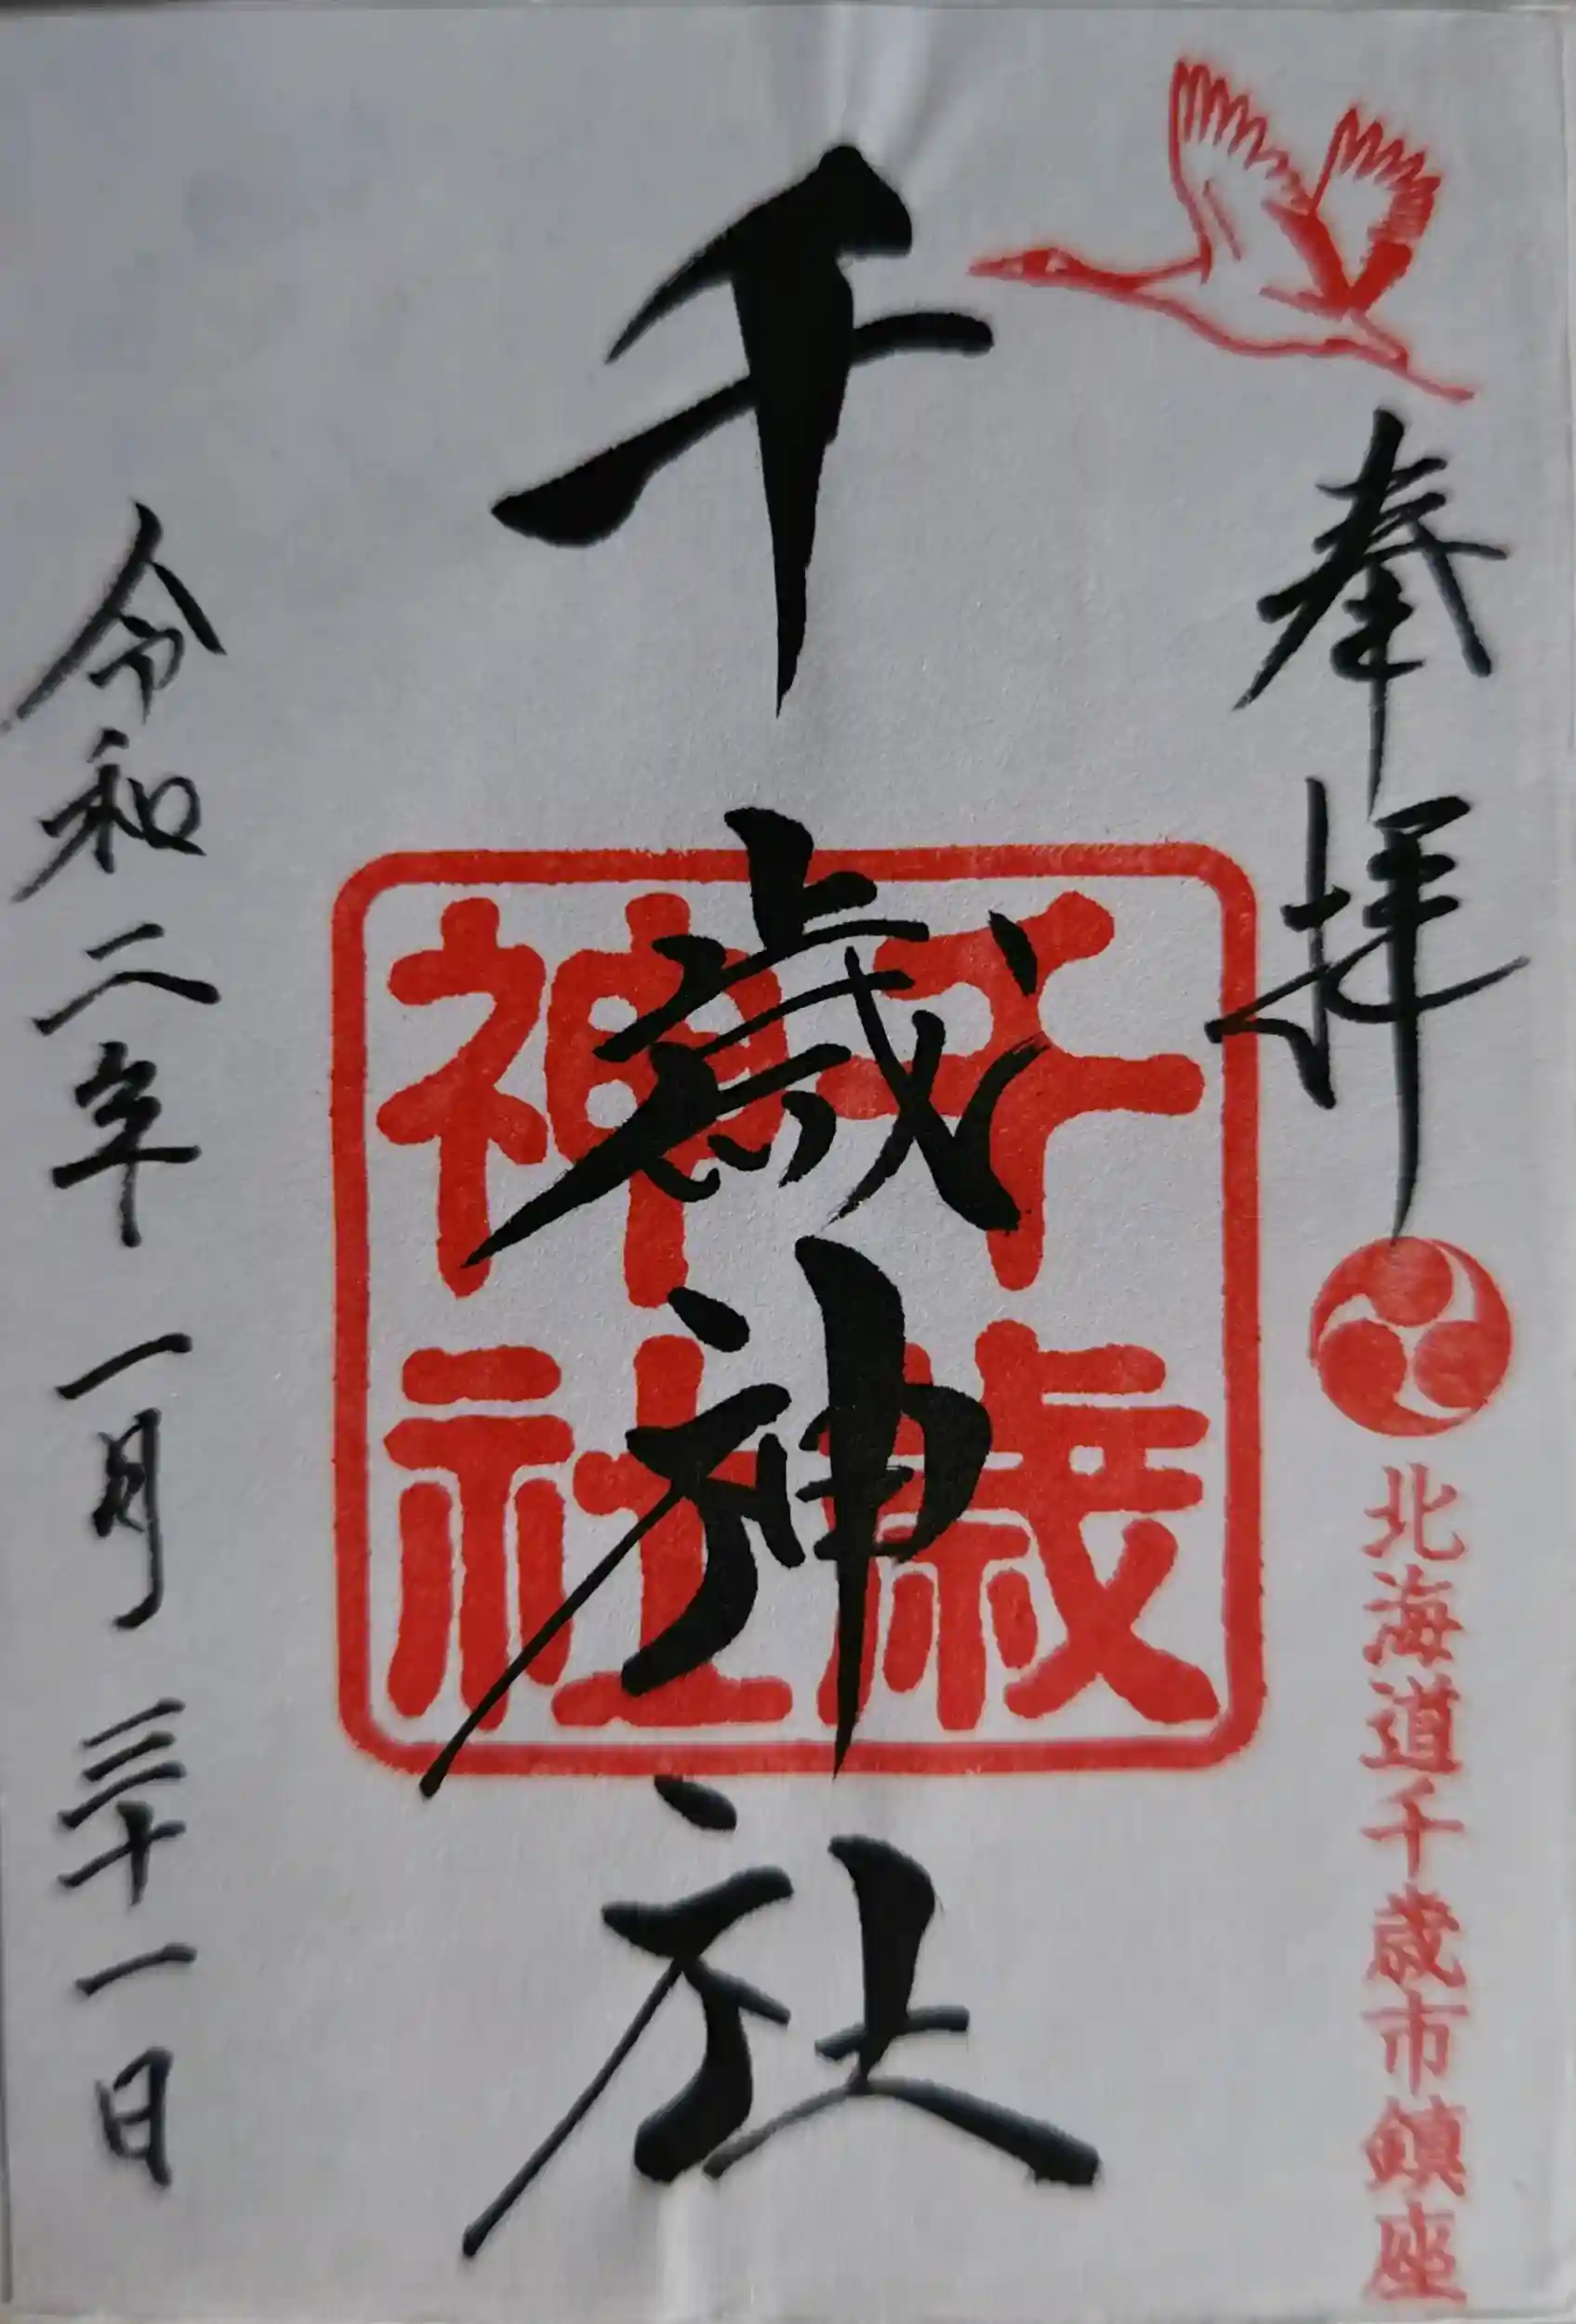 奉拝
北海道千歳市鎮座
千歳神社
千歳
神社
令和二年一月三十一日